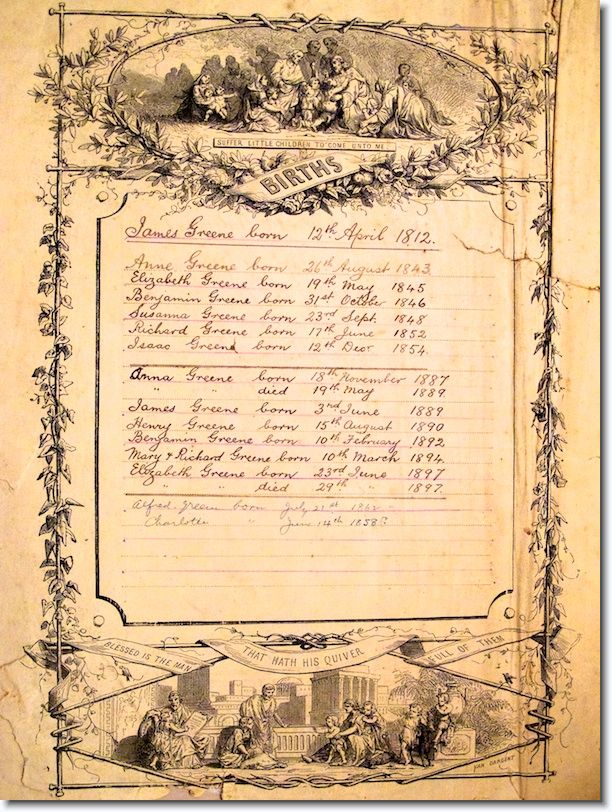 SUFFER LITTLE CHILDREN TO COME UNTO ME
BIRTHS
James Greene born 12th April 1812.
Anne Greene born 26th August 1843
Elizabeth Greene born 19th May 1845
Benjamin Greene born 31st October 1846
Susanna Greene born 23rd Sept. 1848
Richard Greene born 17th June 1852
Isaac Greene born 12th Decr 1854.
Anna Greene born 18th November 1887
" " died 19th May 1889.
James Greene born 3rd June 1889
Henry Greene born 15th August 1890
Benjamin Greene born 10th February 1892.
Mary & Richard Greene born 10th March 1894.
Elizabeth Greene born 23rd June 1897
" " died 29th " 1897.
Alfred Greene born July 21st
Charlotte " June 14th 1858?
BLESSED IS THE MAN
THAT HATH HIS QUIVER
FULL OF THEM